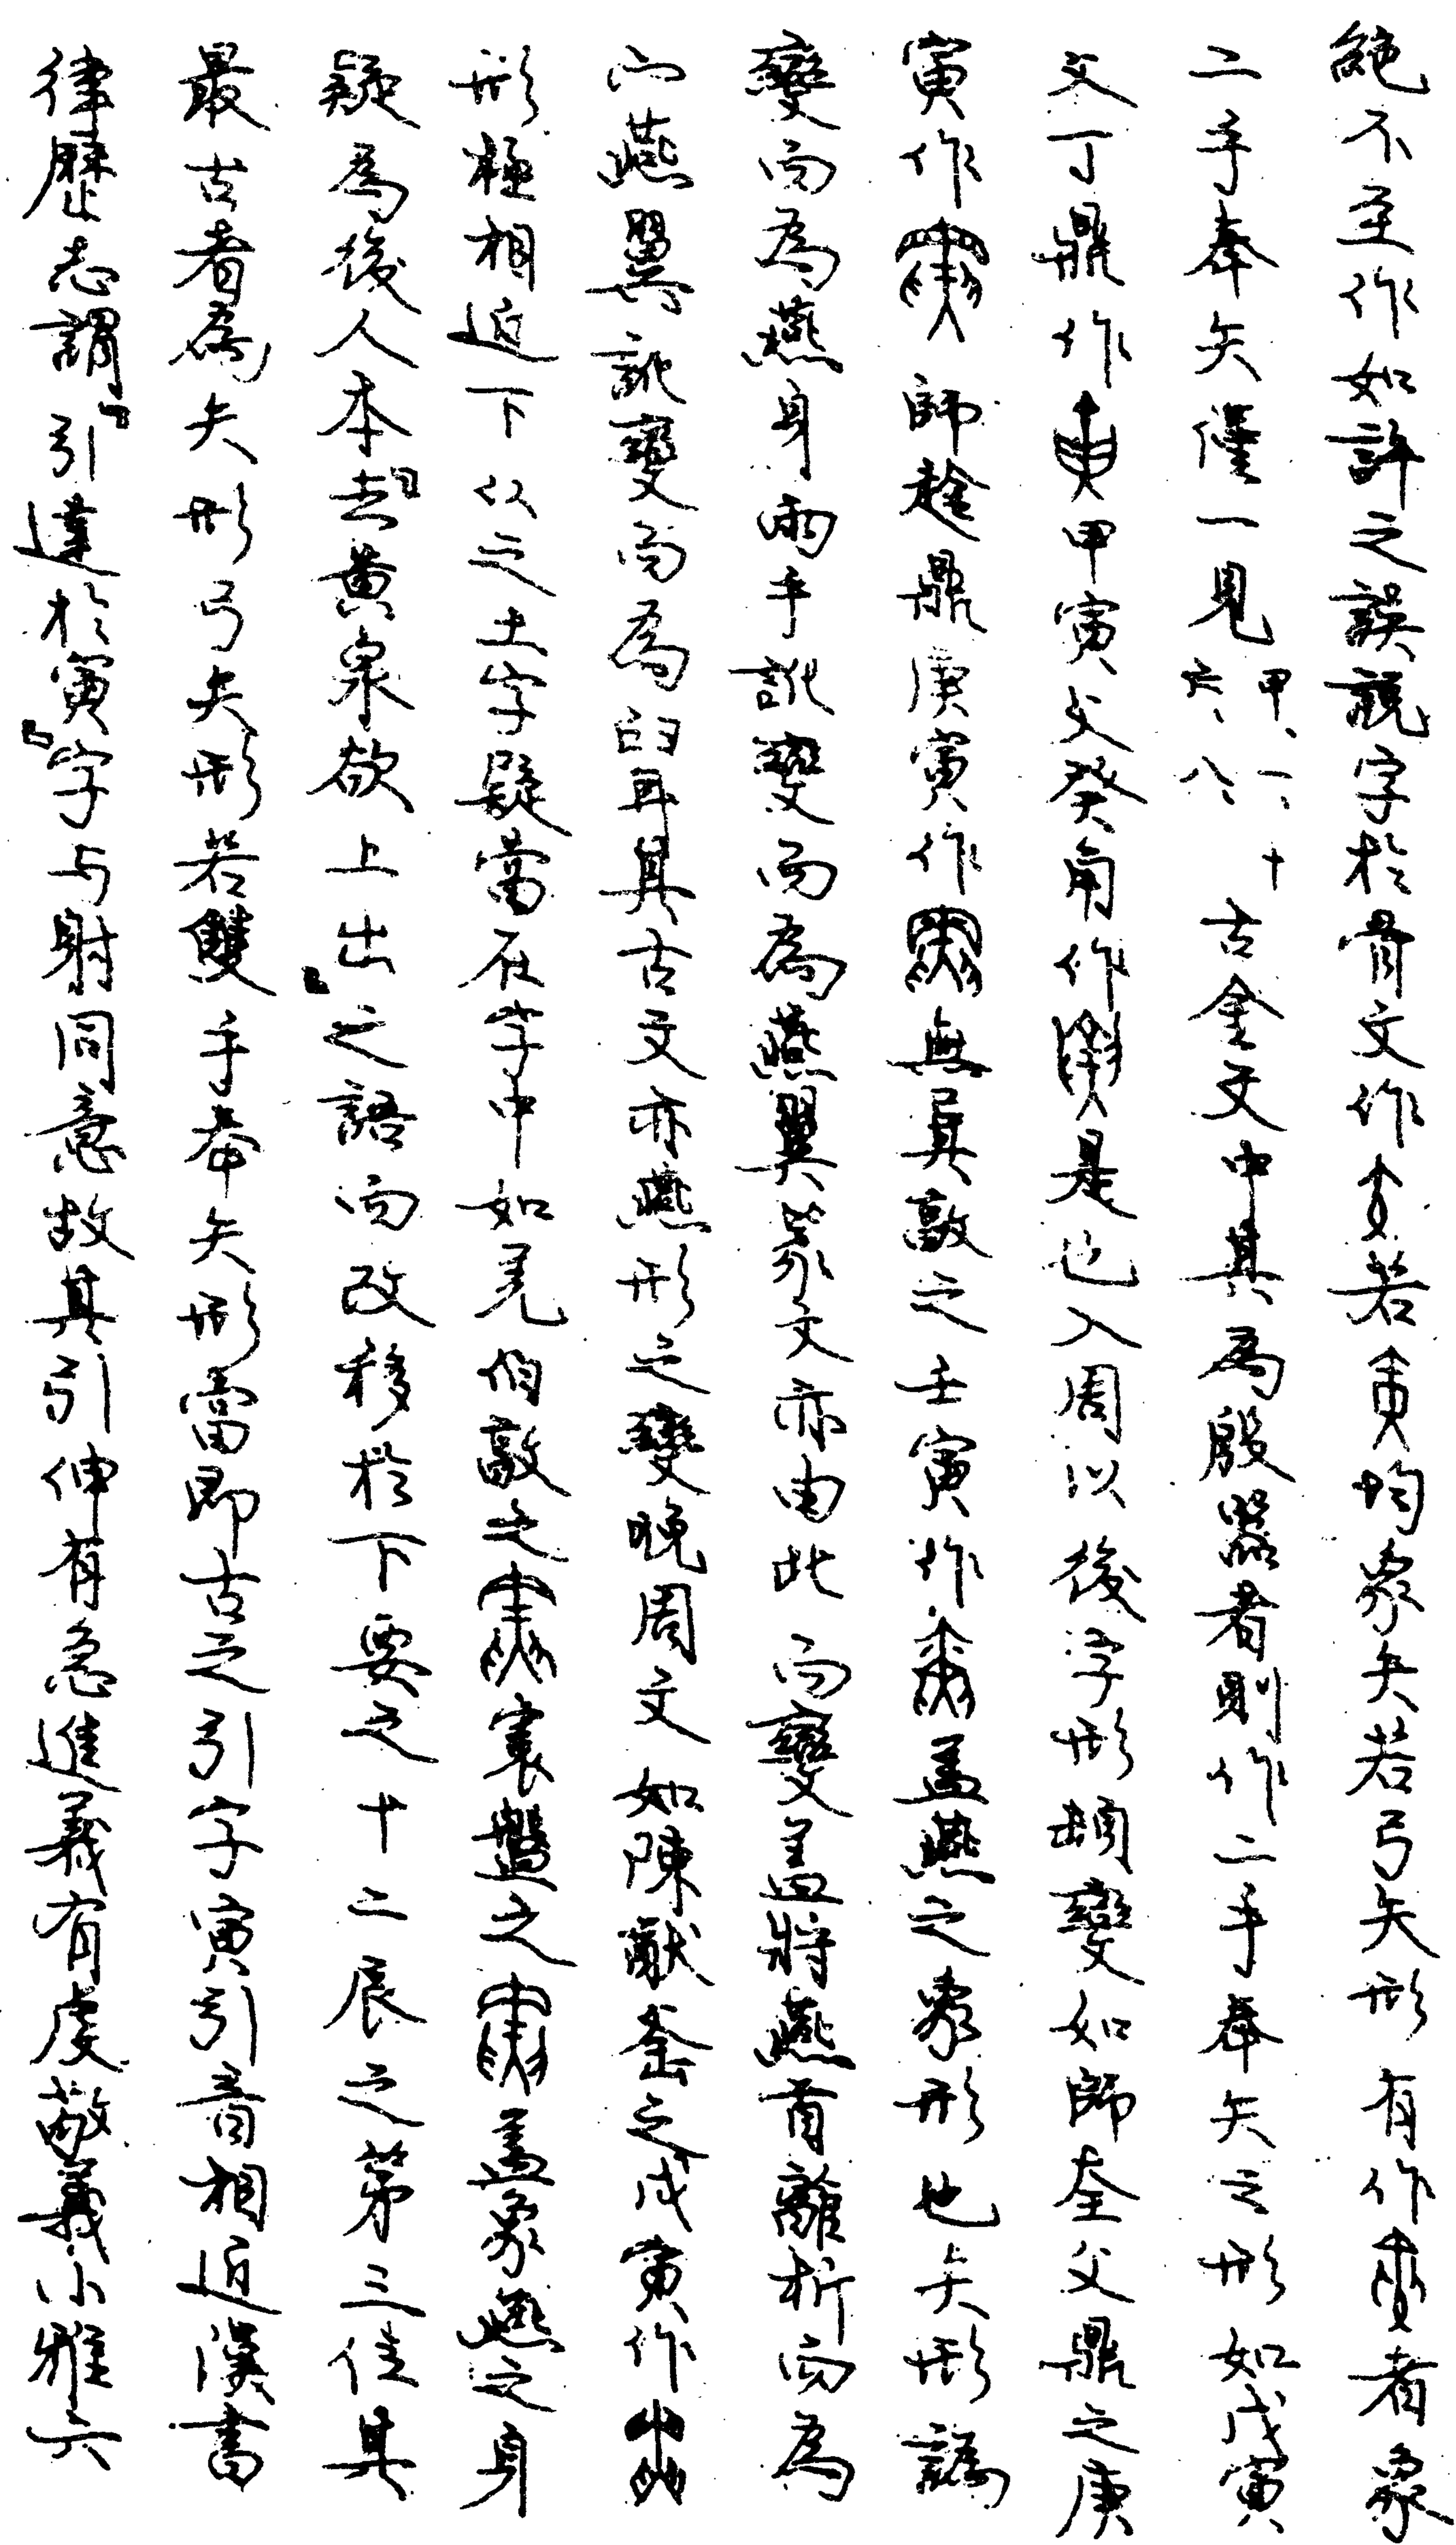 絕不至作如許之誤說字於骨文作若均象矢若弓矢形有作者象
二手奉矢僅一見甲、一、十六、八、古金文中其為殷器者則作二手奉矢之形如戊寅
父丁鼎作甲寅父癸角作是也入周以後字形頓變如師奎父鼎之庚
寅作師趛鼎庚寅作無㠱敦之壬寅作蓋燕之象形也矢形譌
變而為燕身兩手訛變而為燕翼篆文亦由此而變蓋將燕首離析而為
宀燕翼訛變而為臼耳其古文亦燕形之變晚周文如陳猷釜之戊寅作
形極相近下从之土字疑當在字中如羌伯敦之寰盤之蓋象燕之身
疑為後人本去『黃泉欲上出』之語而改移於下要之十二辰之第三位其
最古者為矢形弓矢形若雙手奉矢形當即古之引字寅引音相近漢書
律歷志謂『引達於寅』字与射同意故其引伸有急進義有虔敬義小雅六